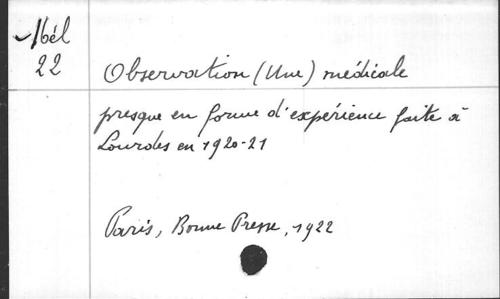 Mél
22
Observation (Une) médicale
presque en forme d'expérience faite à
Lourdes en 1920-21
Paris, Bonne Presse, 1922